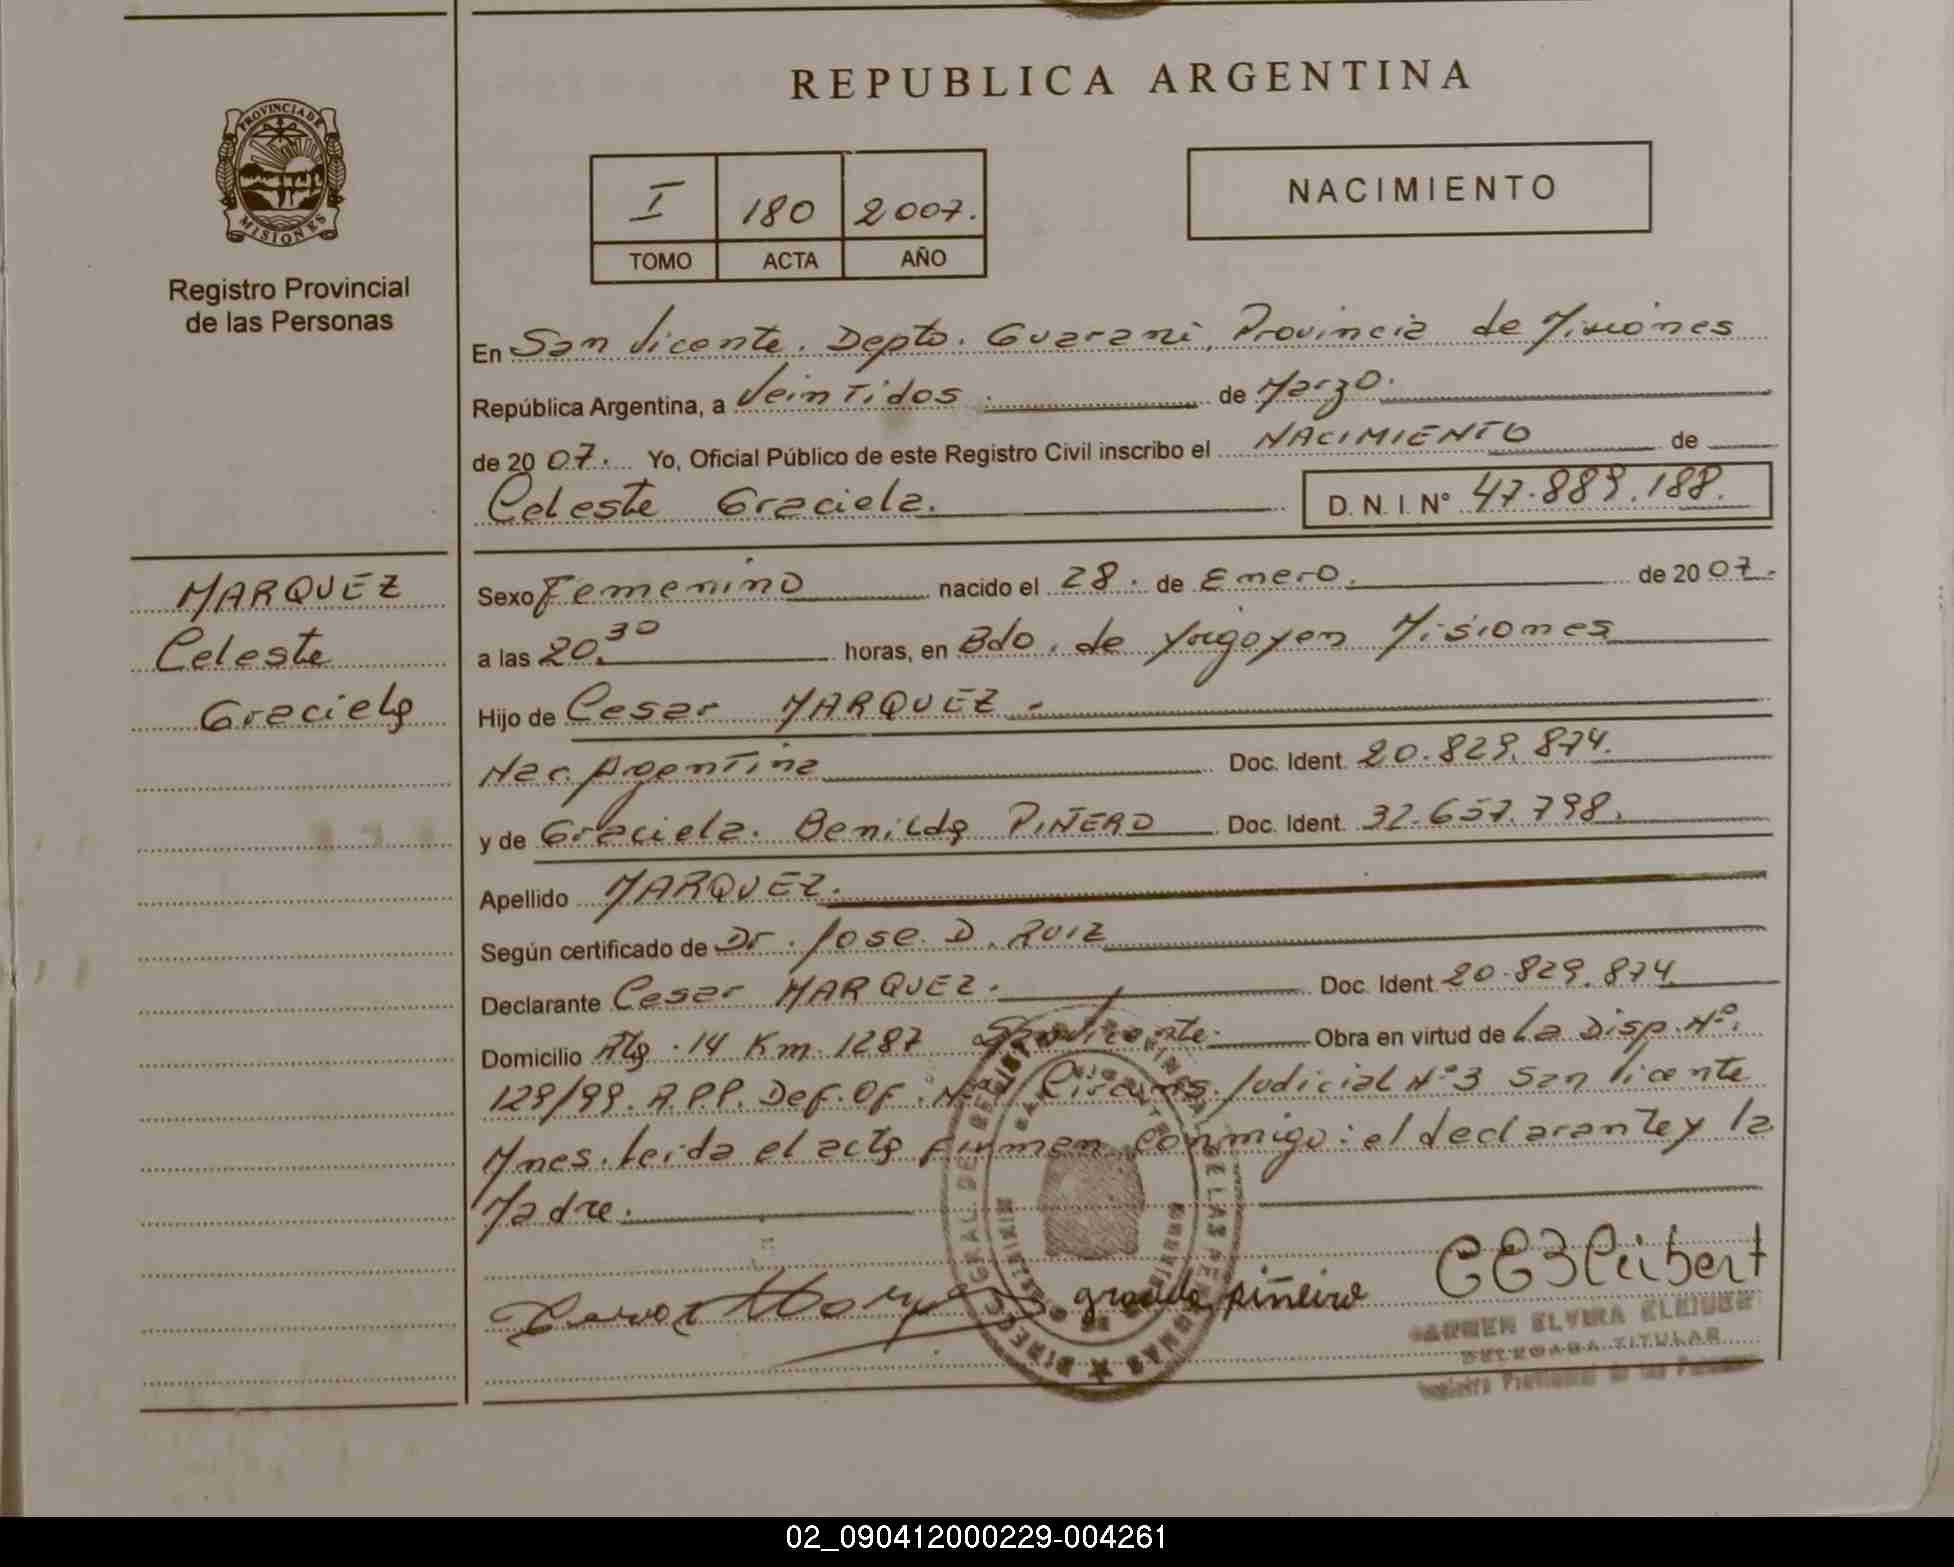 REPUBLICA ARGENTINA
PROVINCIA DE
MISIONES
Registro Provincial
de las Personas
I 180 2007.
TOMO ACTA AÑO
NACIMIENTO
En San Vicente. Depto. Guarani, Provincia de Misiones
República Argentina, a Veintidos de Marzo.
de 2007. Yo, Oficial Público de este Registro Civil inscribo el NACIMIENTO de
Celeste Graciela. D. N. I. Nº 47.889.188.
MARQUEZ
Celeste
Graciela
Sexo Femenino nacido el 28. de Enero. de 2007.
a las 20.30 horas, en Bdo. de Yrigoyen Misiones
Hijo de Cesar MARQUEZ -
Nac. Argentina Doc. Ident. 20.829.874.
y de Graciela. Benilda PIÑERO Doc. Ident. 32.657.798.
Apellido MARQUEZ.
Según certificado de Dr. Jose. D. RUIZ
Declarante Cesar MARQUEZ. Doc. Ident. 20.829.874.
Domicilio Rta. 14 Km. 1287 San Vicente. Obra en virtud de La Disp. Nº.
129/99. R.P.P. Def. Of. Circuns. Judicial Nº3 San Vicente
Mnes. Leida el acta firman conmigo: el declarante y la
Madre.
piñeiro
TITULAR
02_090412000229-004261